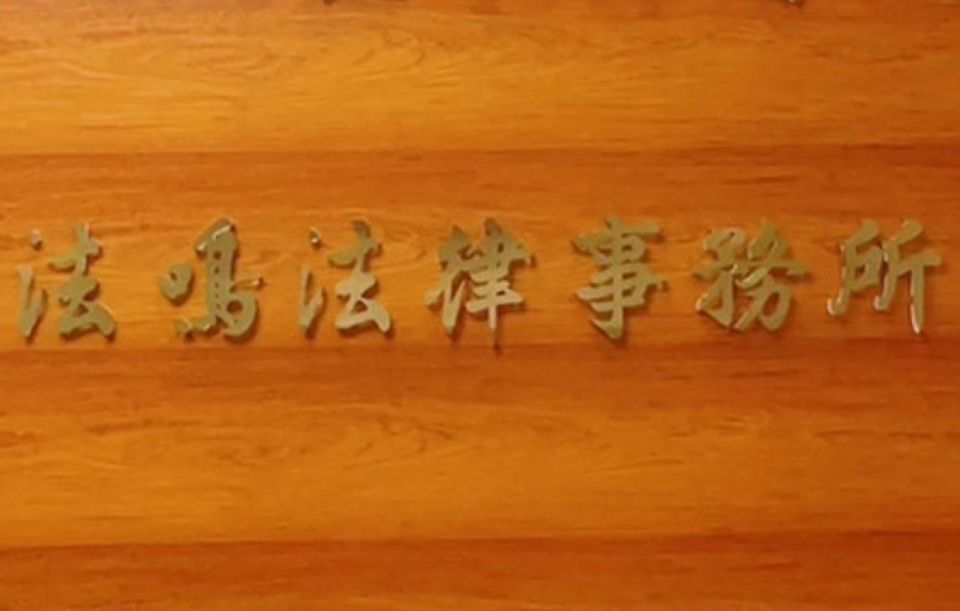 法鳴法律事務所